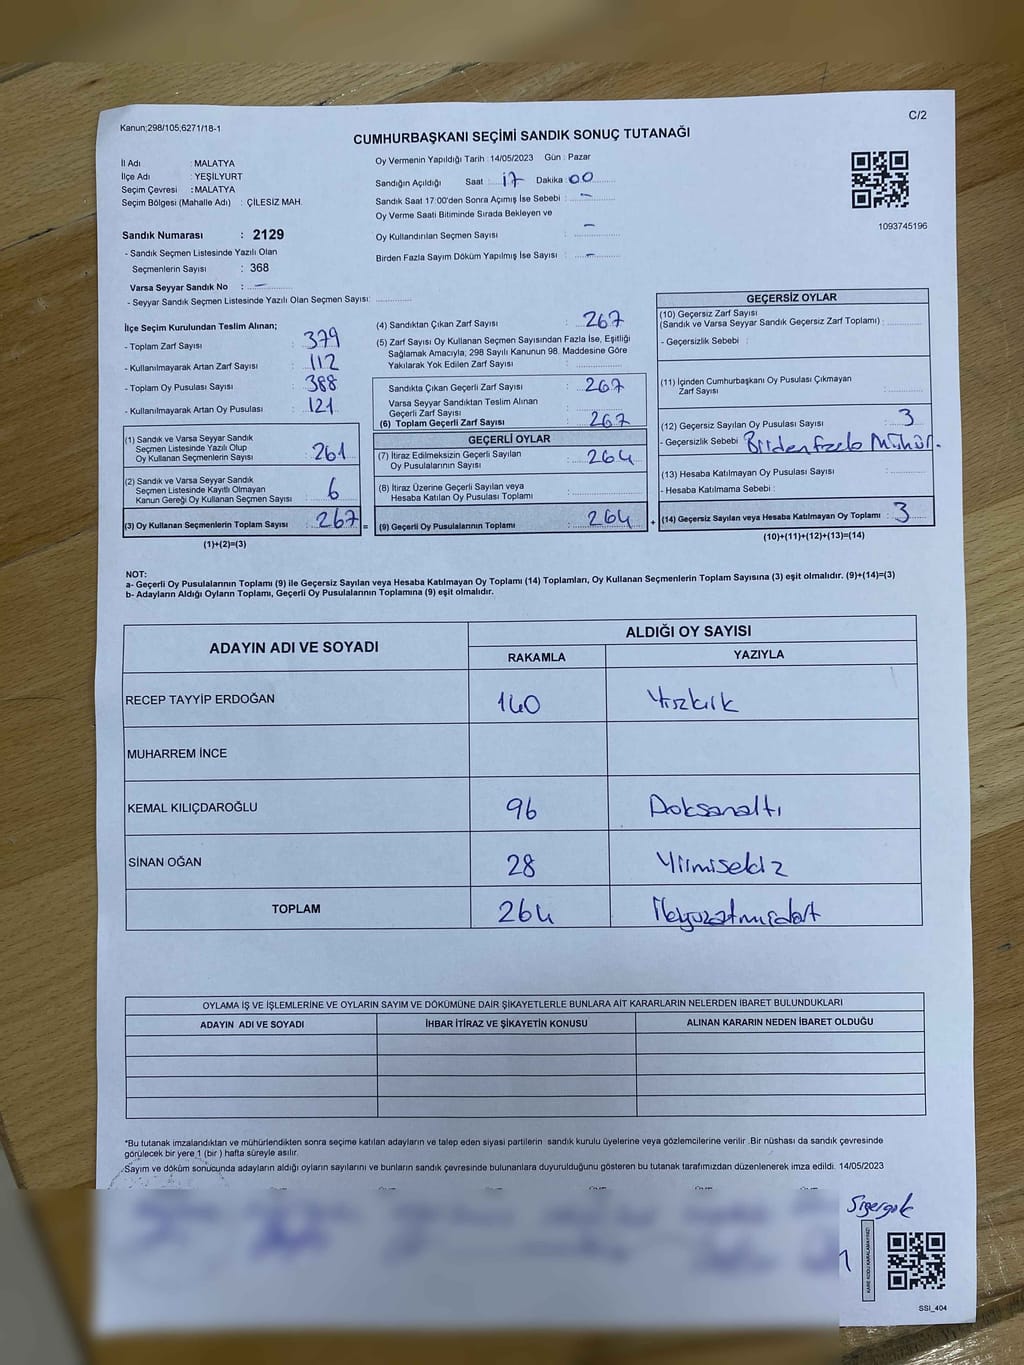 Kanun;298/105;6271/18-1
C/2
CUMHURBAŞKANI SEÇİMİ SANDIK SONUÇ TUTANAĞI
İl Adı : MALATYA
İlçe Adı : YEŞİLYURT
Seçim Çevresi : MALATYA
Seçim Bölgesi (Mahalle Adı) : ÇİLESİZ MAH.
Oy Vermenin Yapıldığı Tarih : 14/05/2023 Gün : Pazar
Sandığın Açıldığı Saat : 17 Dakika : 00
Sandık Saat 17:00'den Sonra Açımış İse Sebebi : -
Oy Verme Saati Bitiminde Sırada Bekleyen ve
Oy Kullandırılan Seçmen Sayısı : -
Birden Fazla Sayım Döküm Yapılmış İse Sayısı : -
1093745196
Sandık Numarası : 2129
- Sandık Seçmen Listesinde Yazılı Olan
Seçmenlerin Sayısı : 368
Varsa Seyyar Sandık No : -
- Seyyar Sandık Seçmen Listesinde Yazılı Olan Seçmen Sayısı:
İlçe Seçim Kurulundan Teslim Alınan;
- Toplam Zarf Sayısı : 379
- Kullanılmayarak Artan Zarf Sayısı : 112
- Toplam Oy Pusulası Sayısı : 388
- Kullanılmayarak Artan Oy Pusulası : 121
(1) Sandık ve Varsa Seyyar Sandık
Seçmen Listesinde Yazılı Olup
Oy Kullanan Seçmenlerin Sayısı : 261
(2) Sandık ve Varsa Seyyar Sandık
Seçmen Listesinde Kayıtlı Olmayan
Kanun Gereği Oy Kullanan Seçmen Sayısı : 6
(3) Oy Kullanan Seçmenlerin Toplam Sayısı : 267 =
(1)+(2)=(3)
(4) Sandıktan Çıkan Zarf Sayısı : 267
(5) Zarf Sayısı Oy Kullanan Seçmen Sayısından Fazla İse, Eşitliği
Sağlamak Amacıyla, 298 Sayılı Kanunun 98. Maddesine Göre
Yakılarak Yok Edilen Zarf Sayısı :
Sandıkta Çıkan Geçerli Zarf Sayısı : 267
Varsa Seyyar Sandıktan Teslim Alınan
Geçerli Zarf Sayısı :
(6) Toplam Geçerli Zarf Sayısı : 267
GEÇERLİ OYLAR
(7) İtiraz Edilmeksizin Geçerli Sayılan
Oy Pusulalarının Sayısı : 264
(8) İtiraz Üzerine Geçerli Sayılan veya
Hesaba Katılan Oy Pusulası Toplamı :
(9) Geçerli Oy Pusulalarının Toplamı : 264 +
GEÇERSİZ OYLAR
(10) Geçersiz Zarf Sayısı
(Sandık ve Varsa Seyyar Sandık Geçersiz Zarf Toplamı) :
- Geçersizlik Sebebi :
(11) İçinden Cumhurbaşkanı Oy Pusulası Çıkmayan
Zarf Sayısı :
(12) Geçersiz Sayılan Oy Pusulası Sayısı : 3
- Geçersizlik Sebebi : Birden fazla Mühür.
(13) Hesaba Katılmayan Oy Pusulası Sayısı :
- Hesaba Katılmama Sebebi :
(14) Geçersiz Sayılan veya Hesaba Katılmayan Oy Toplamı : 3
(10)+(11)+(12)+(13)=(14)
NOT:
a- Geçerli Oy Pusulalarının Toplamı (9) ile Geçersiz Sayılan veya Hesaba Katılmayan Oy Toplamı (14) Toplamları, Oy Kullanan Seçmenlerin Toplam Sayısına (3) eşit olmalıdır. (9)+(14)=(3)
b- Adayların Aldığı Oyların Toplamı, Geçerli Oy Pusulalarının Toplamına (9) eşit olmalıdır.
ADAYIN ADI VE SOYADI
ALDIĞI OY SAYISI
RAKAMLA YAZIYLA
RECEP TAYYİP ERDOĞAN 140 Yüzkırk
MUHARREM İNCE
KEMAL KILIÇDAROĞLU 96 Doksanaltı
SİNAN OĞAN 28 Yirmisekiz
TOPLAM 264 İkiyüzatmışdört
OYLAMA İŞ VE İŞLEMLERİNE VE OYLARIN SAYIM VE DÖKÜMÜNE DAİR ŞİKAYETLERLE BUNLARA AİT KARARLARIN NELERDEN İBARET BULUNDUKLARI
ADAYIN ADI VE SOYADI İHBAR İTİRAZ VE ŞİKAYETİN KONUSU ALINAN KARARIN NEDEN İBARET OLDUĞU
*Bu tutanak imzalandıktan ve mühürlendikten sonra seçime katılan adayların ve talep eden siyasi partilerin sandık kurulu üyelerine veya gözlemcilerine verilir .Bir nüshası da sandık çevresinde
görülecek bir yere 1 (bir ) hafta süreyle asılır.
Sayım ve döküm sonucunda adayların aldığı oyların sayılarını ve bunların sandık çevresinde bulunanlara duyurulduğunu gösteren bu tutanak tarafımızdan düzenlenerek imza edildi. 14/05/2023
KARE KODU KARALAMAYINIZ!
SSI_404